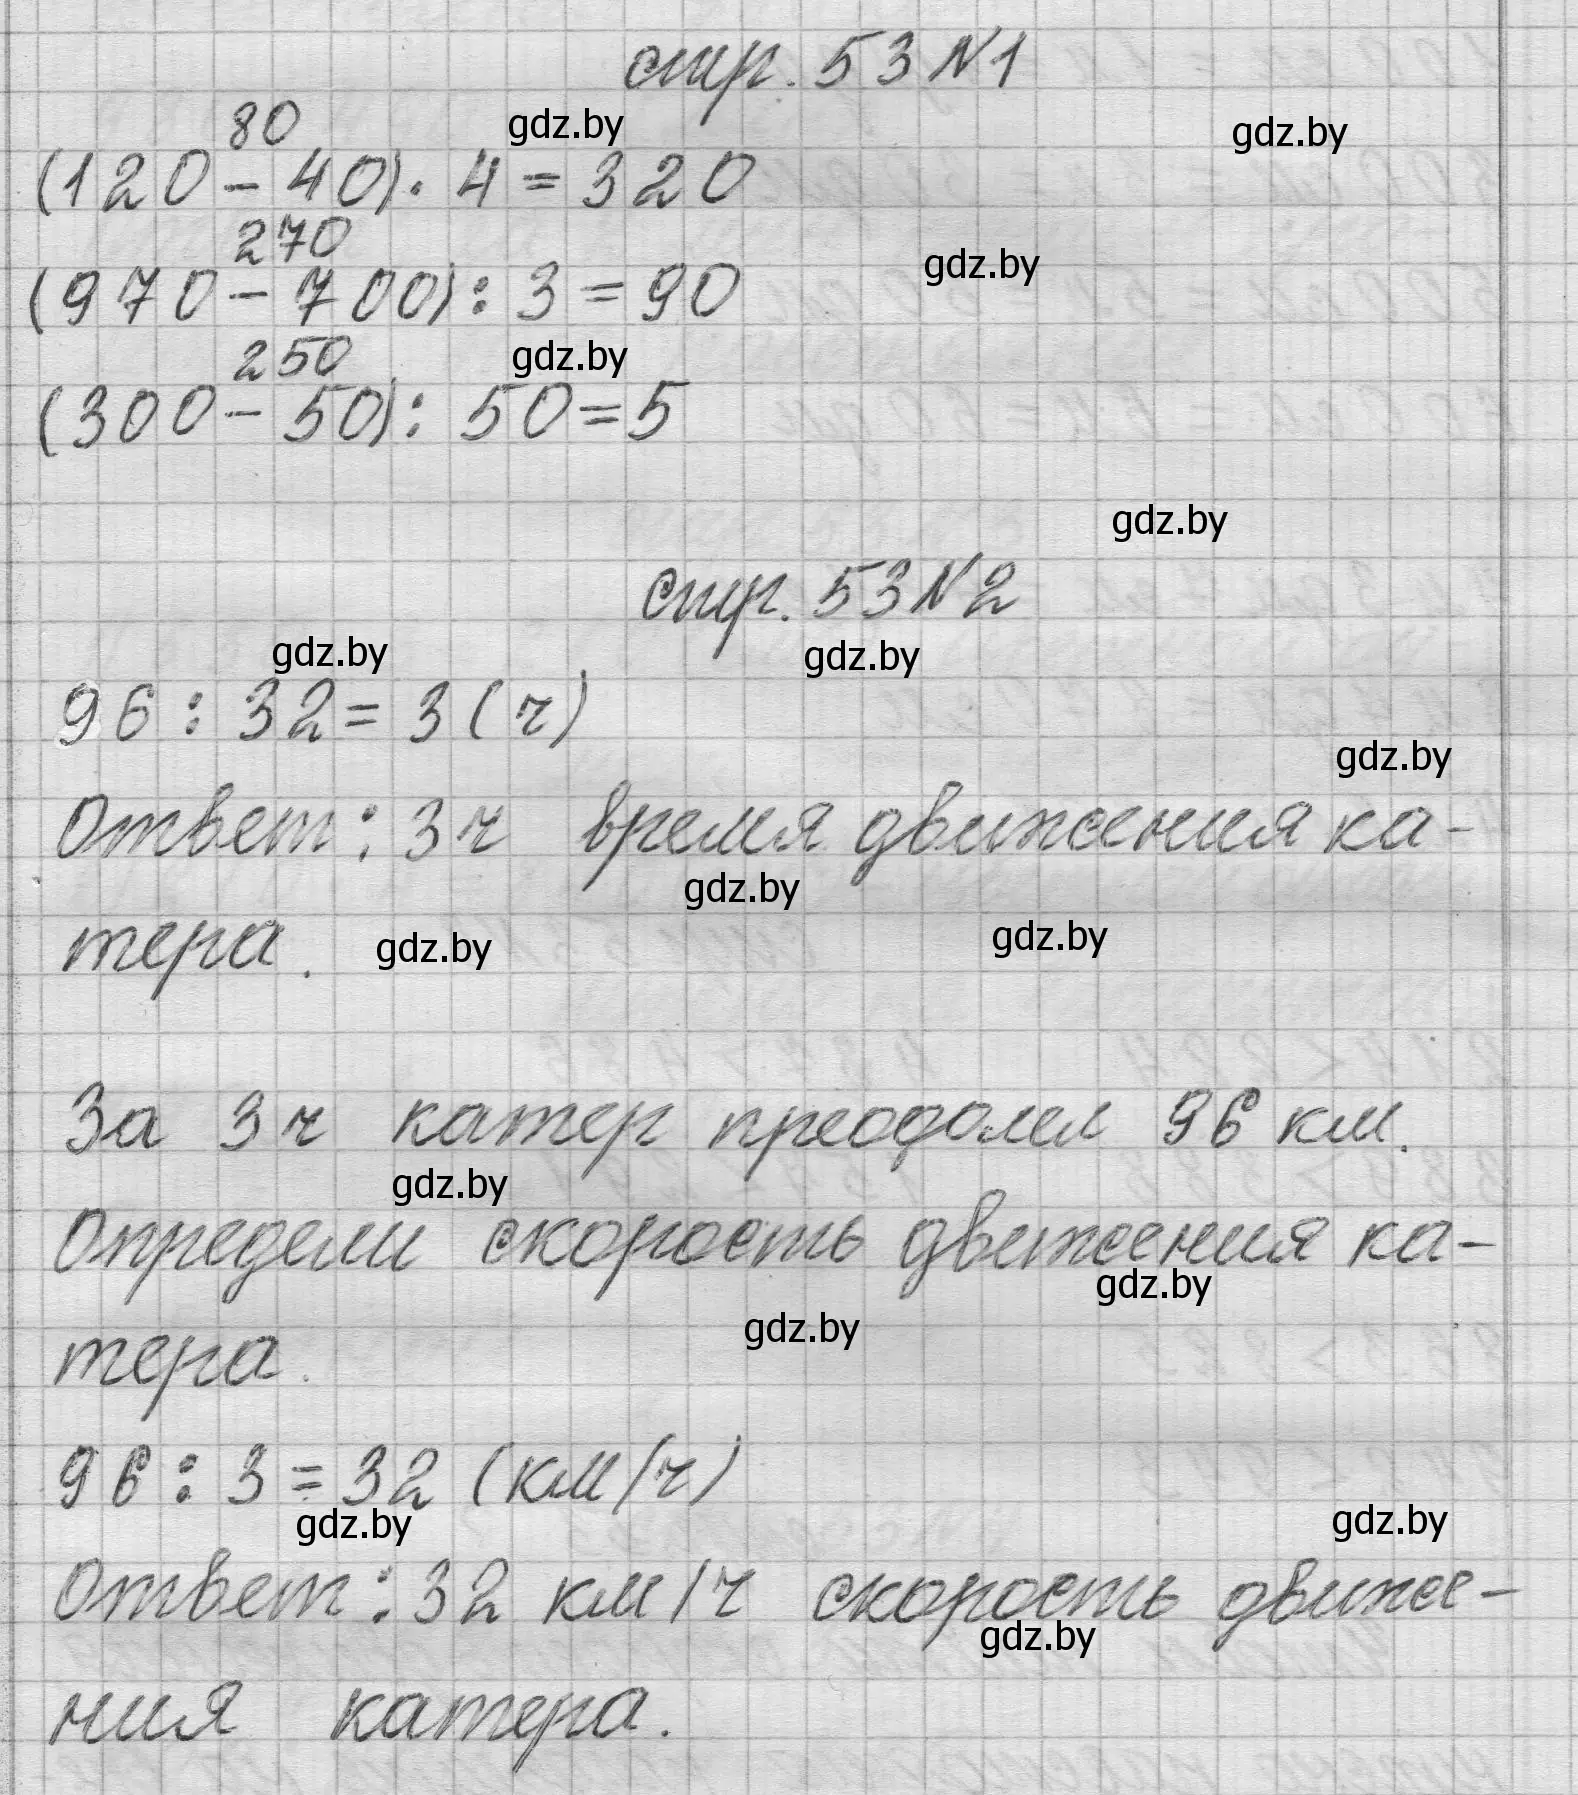 стр. 53 N1
80
gdz.by
gdz.by
(120 - 40) · 4 = 320
270
(970 - 700) : 3 = 90
gdz.by
250
gdz.by
(300 - 50) : 50 = 5
gdz.by
стр. 53 N2
gdz.by
gdz.by
96 : 32 = 3 (ч)
gdz.by
Ответ: 3 ч время движения ка-
gdz.by
тера.
gdz.by
gdz.by
За 3 ч катер преодолел 96 км.
gdz.by
Определи скорость движения ка-
gdz.by
gdz.by
тера.
96 : 3 = 32 (км/ч)
gdz.by
gdz.by
Ответ: 32 км/ч скорость движе-
gdz.by
ния катера.